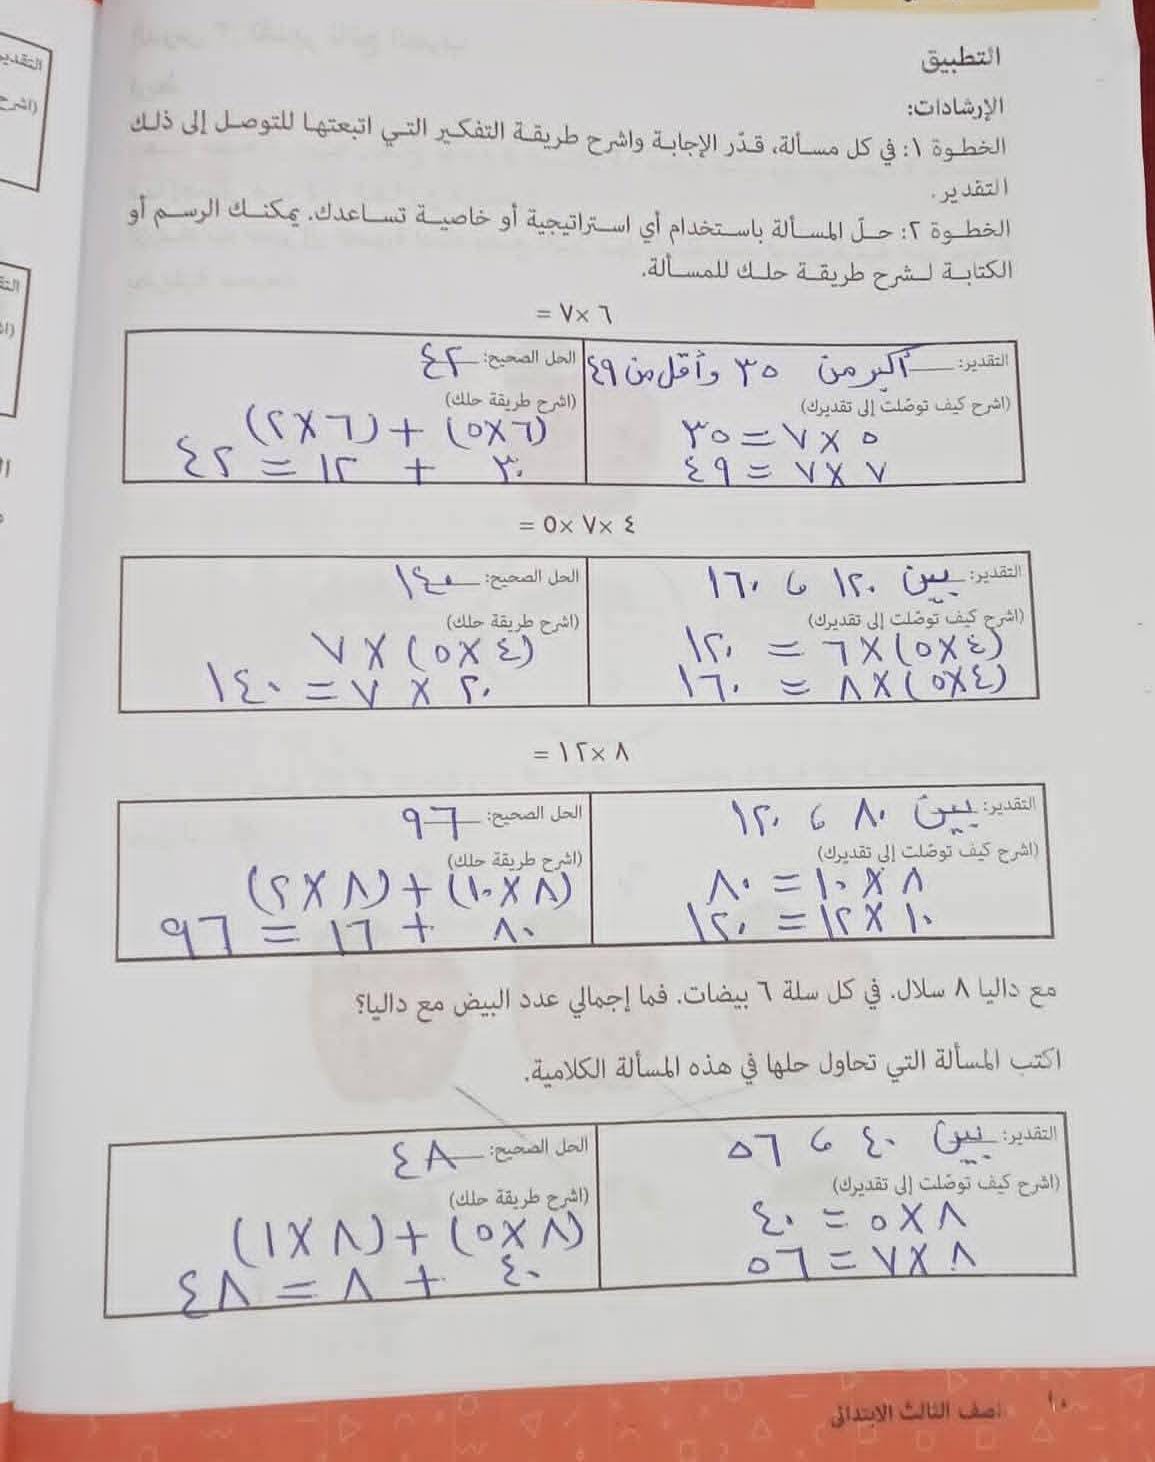 التطبيق
الإرشادات:
الخطوة ١: في كل مسألة، قدّر الإجابة واشرح طريقة التفكير التي اتبعتها للتوصل إلى ذلك
التقدير.
الخطوة ٢: حلّ المسألة باستخدام أي استراتيجية أو خاصية تساعدك. يمكنك الرسم أو
الكتابة لشرح طريقة حلك للمسألة.
٦ × ٧ =
التقدير: أكبر من ٣٥ وأقل من ٤٩
(اشرح كيف توصّلت إلى تقديرك)
٥ × ٧ = ٣٥
٧ × ٧ = ٤٩
الحل الصحيح: ٤٢
(اشرح طريقة حلك)
(٦×٥) + (٦×٢)
٣٠ + ١٢ = ٤٢
٤ × ٧ × ٥ =
التقدير: بين ١٢٠ و ١٦٠
(اشرح كيف توصّلت إلى تقديرك)
(٤×٥) × ٦ = ١٢٠
(٤×٥) × ٨ = ١٦٠
الحل الصحيح: ١٤٠
(اشرح طريقة حلك)
(٤×٥) × ٧
٢٠ × ٧ = ١٤٠
٨ × ١٢ =
التقدير: بين ٨٠ و ١٢٠
(اشرح كيف توصّلت إلى تقديرك)
٨ × ١٠ = ٨٠
١٠ × ١٢ = ١٢٠
الحل الصحيح: ٩٦
(اشرح طريقة حلك)
(٨×١٠) + (٨×٢)
٨٠ + ١٦ = ٩٦
مع داليا ٨ سلال. في كل سلة ٦ بيضات. فما إجمالي عدد البيض مع داليا؟
اكتب المسألة التي تحاول حلها في هذه المسألة الكلامية.
التقدير: بين ٤٠ و ٥٦
(اشرح كيف توصّلت إلى تقديرك)
٨ × ٥ = ٤٠
٨ × ٧ = ٥٦
الحل الصحيح: ٤٨
(اشرح طريقة حلك)
(٨×٥) + (٨×١)
٤٠ + ٨ = ٤٨
١٠ الصف الثالث الابتدائي
التقدير